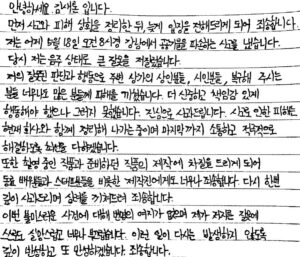 안녕하세요 김새론입니다.
먼저 사고와 피해 상황을 정리한 뒤, 늦게 입장을 전해드리게 되어 죄송합니다.
저는 어제 5월 18일 오전 8시경 강남에서 공공기물을 파손하는 사고를 냈습니다.
당시 저는 음주 상태로 큰 잘못을 저질렀습니다.
저의 잘못된 판단과 행동으로 주변 상가의 상인분들, 시민분들, 복구해 주시는
분들 너무나도 많은 분들께 피해를 끼쳤습니다. 더 신중하고 책임감 있게
행동했어야 했으나 그러지 못했습니다. 진심으로 사과드립니다. 사고로 인한 피해는
현재 회사와 함께 정리해 나가는 중이며 마지막까지 소통하고 적극적으로
해결하도록 최선을 다하겠습니다.
또한 촬영 중인 작품과 준비하던 작품의 제작에 차질을 드리게 되어
동료 배우들과 스태프분들을 비롯한 제작진에게도 너무나 죄송합니다. 다시 한번
깊이 사과드리며 심려를 끼쳐드려 죄송합니다.
이런 불미스러운 사건에 대해 변명의 여지가 없으며 제가 저지른 잘못에
스스로도 실망스럽고 너무나 부끄럽습니다. 이런 일이 다시는 발생하지 않도록
깊이 반성하고 또 반성하겠습니다. 죄송합니다.